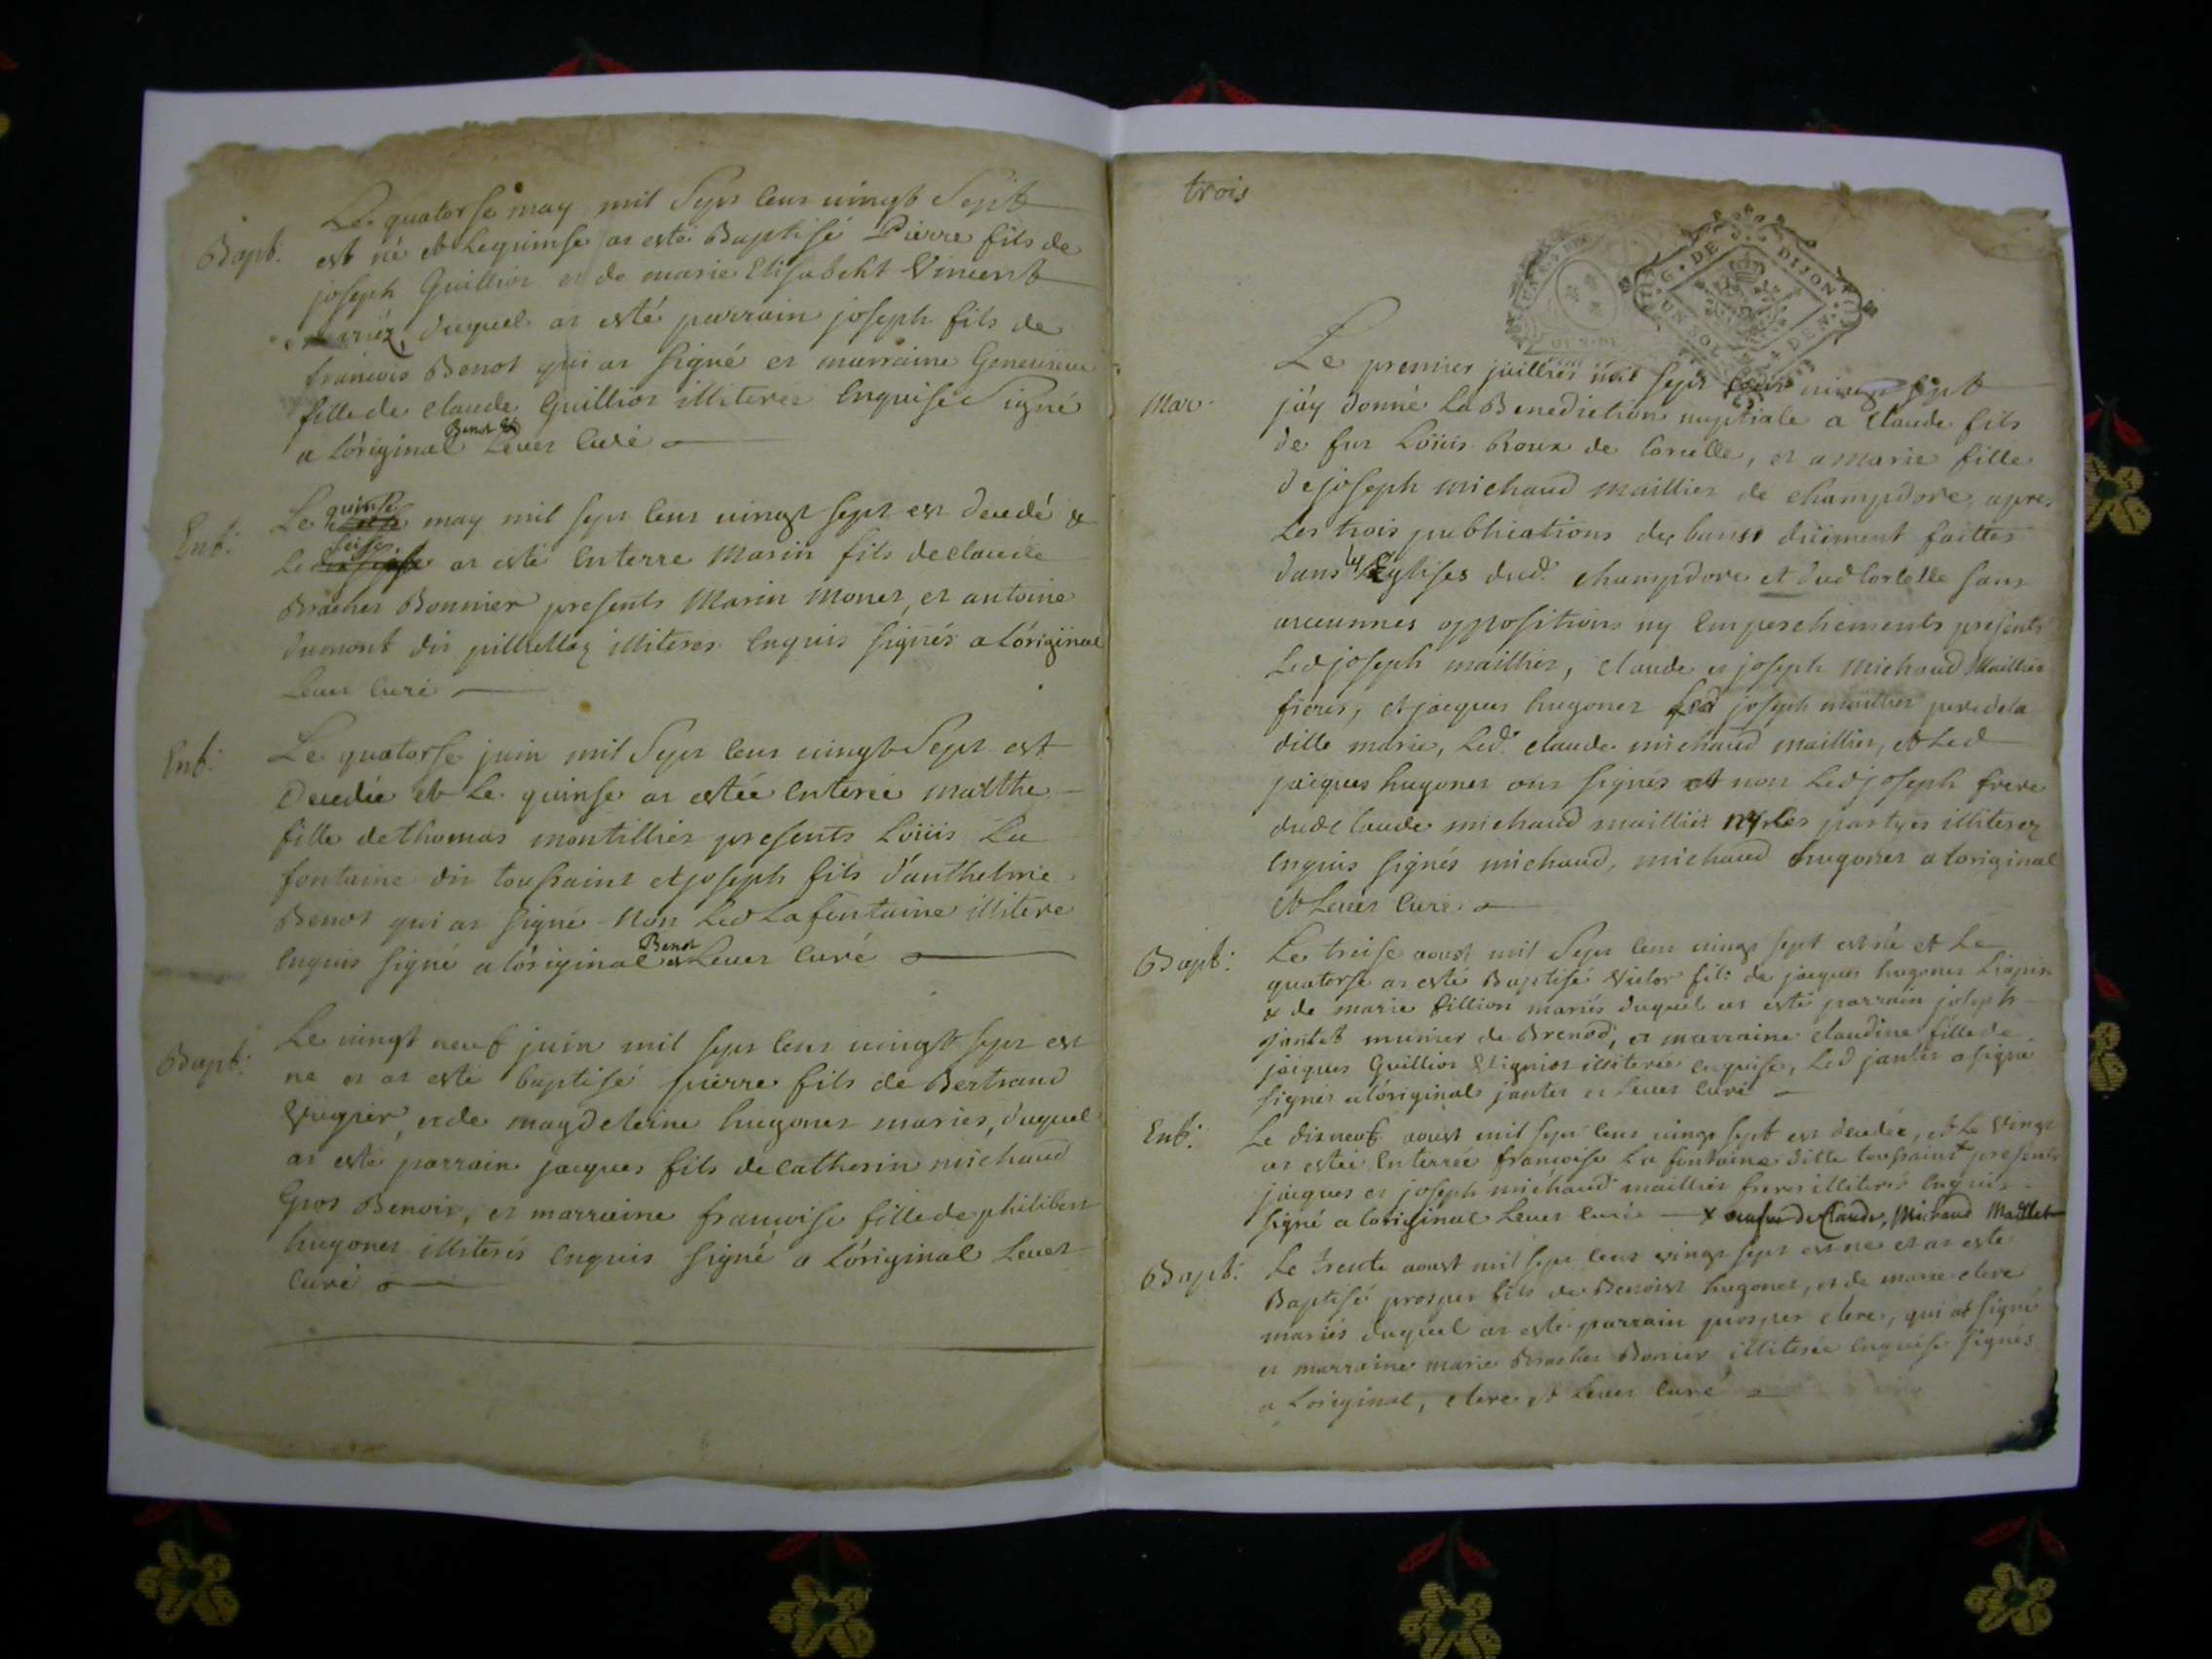 Bapt:
Le quatorse may mil Sept cent vingt Sept
est né et le quinse at esté Baptisé Pierre fils de
joseph Guilliot et de marie Elisabeht Vincent
mariéz, duquel at esté parrain joseph fils de
francois Benot qui at Signé et marraine Genevieve
fille de claude Guilliot illiteree Enquise Signé
a l'original Benot & Levet Curé
Ent:
Le quinse may mil sept cent vingt sept est decedé &
Le seise at esté Enterre Marin fils de claude
Brachet Bonnier presents Marin Monet, et antoine
dumont dit pillielloz illiteres Enquis signés a l'original
Levet Curé
Ent:
Le quatorse juin mil Sept cent vingt Sept est
Decedée et Le quinse at estée enterée marthe
fille de thomas montillier presents Loüis La
fontaine dit toussaint et joseph fils d'anthelme
Benot qui at signé non Led Lafontaine illitere
enquis signé a l'original Benot et Levet Curé
Bapt:
Le vingt neuf juin mil sept cent vingt sept est
ne et at esté baptisé pierre fils de Bertrand
et de magdeleine hugonet mariés, duquel
at esté parrain jacques fils de Catherin michaud
Gros Benoit, et marraine francoise fille de philibert
hugonet illiterés enquis signé a L'original Levet
Curé
trois
G. DE DIJON
UN SOL 4 DEN.
Mar.
Le premier juilliet mil sept cent vingt sept
j'ay donné La Benediction nuptiale a Claude fils
de fut Loüis Roux de Corcelle, et a Marie fille
de joseph michaud maillier de champdore apres
Les trois publications des bans düement faittes
dans les Eglises dud. champdore et dud Corcelle sans
aucunnes oppositions ny Empeschements presents
Led joseph maillier, claude et joseph michaud Maillier
freres, et jacques hugonet Led joseph maillier pere de la
ditte marie, Led. claude michaud maillier, et Led
jacques hugonet ont signés et non Led joseph frere
dud claude michaud maillier ny les partyes illiterez
Enquis signés michaud, michaud hugonet a loriginal
et Levet Curé.
Bapt:
Le treise aoust mil Sept cent vingt sept est né et Le
quatorse at esté Baptisé Victor fils de jacques hugonet
& de marie fillion mariés duquel at esté parrain joseph
jantet munier de Brenod, et marraine claudine fille de
jacques Guilliot illiterée enquise, Led jantet a signé
signés a l'original jantet et Levet Curé
Ent:
Le disneuf aoust mil sept cent vingt sept est decedée, et Le Vingt
at estée Enterrée francoise La fontaine ditte toussaint presents
jacques et joseph michaud maillier freres illiterés enquis
signé a loriginal Levet Curé x de Claude, Michaud Maillet
Bapt:
Le trente aoust mil sept cent vingt sept est ne et at esté
Baptisé prosper fils de Benoist hugonet, et de marie clere
mariés duquel at esté parrain prosper clere, qui at signé
et marraine marie Brachet Bonier illiterée enquise signés
a Loriginal, clere et Levet Curé